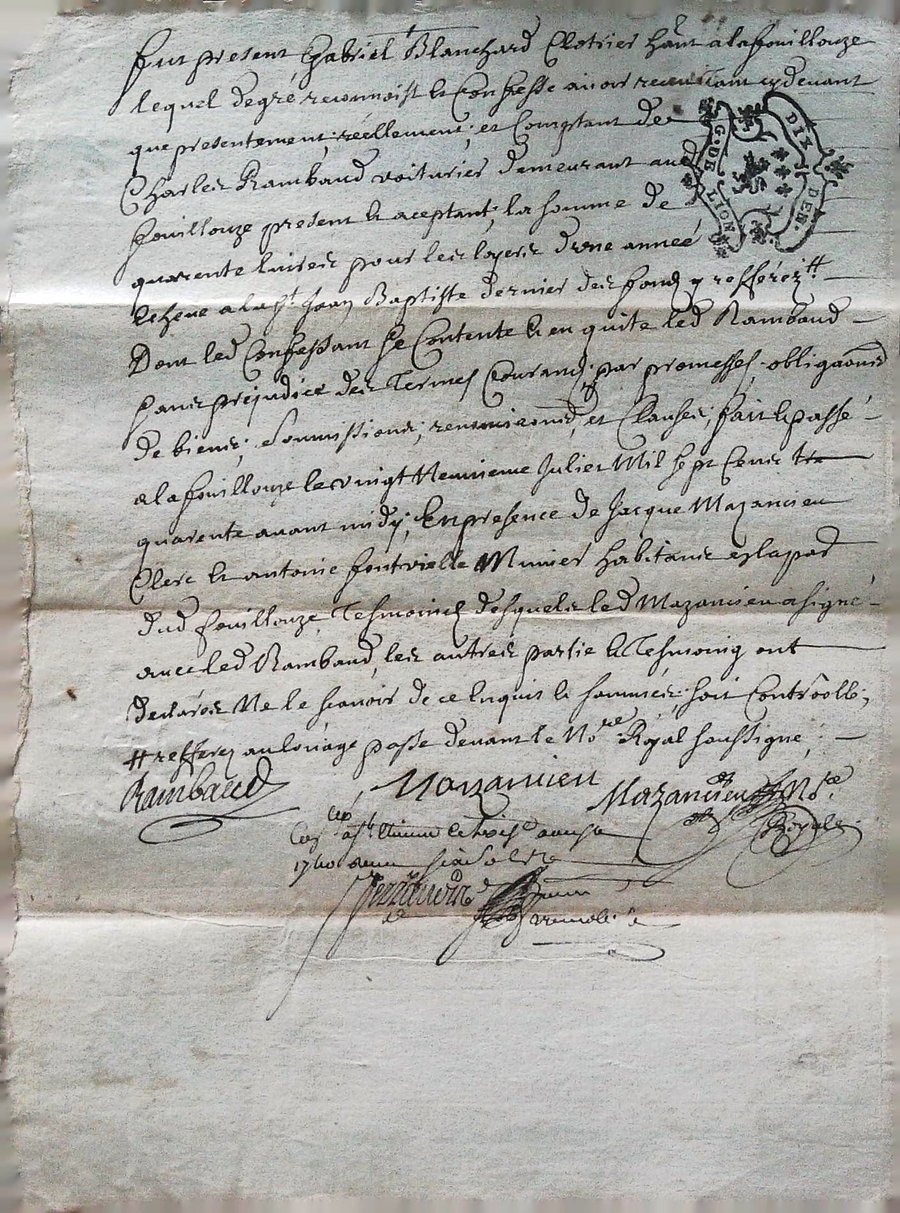 fut present Gabriel Blanchard Clotrier hãnt a la fouillouze
lequel de gré reconnoist et Confesse avoir receu tant cy devant
que presentement, réellement, et Comptant de
Charles Rambaud voiturier demeurant aud
fouillouze present et aceptant, la somme de
quarente livres pour les loyers d'une année
echeue a la st Jean Baptiste dernier des fonds y refférez ⧺
Dont led Confessant se Contente et en quite led Rambaud
sans préjudice des Termes Courand, par promesses, obligaõns
de biens, soumissions, renonciaõns, et Clauses, fait et passé
a la fouillouze le vingt Neuvieme Julier Mil sept Cents
quarente avant midy, En presence de Jacque Mazancieu
Clerc et antoine fontvielle Munier habitants
dud fouillouze, Tesmoins desquels led Mazancieu a signé
avec led Rambaud, les autres partie et Tesmoing ont
declarés Ne le scavoir de ce Enquis et sommés, soit Controllé,
⧺ refferez au louage passé devant le Nore Royal soussigné,
Rambaud Mazancieu Mazancieu Nore
Royal
1740
G. DE LION
DIX DEN.